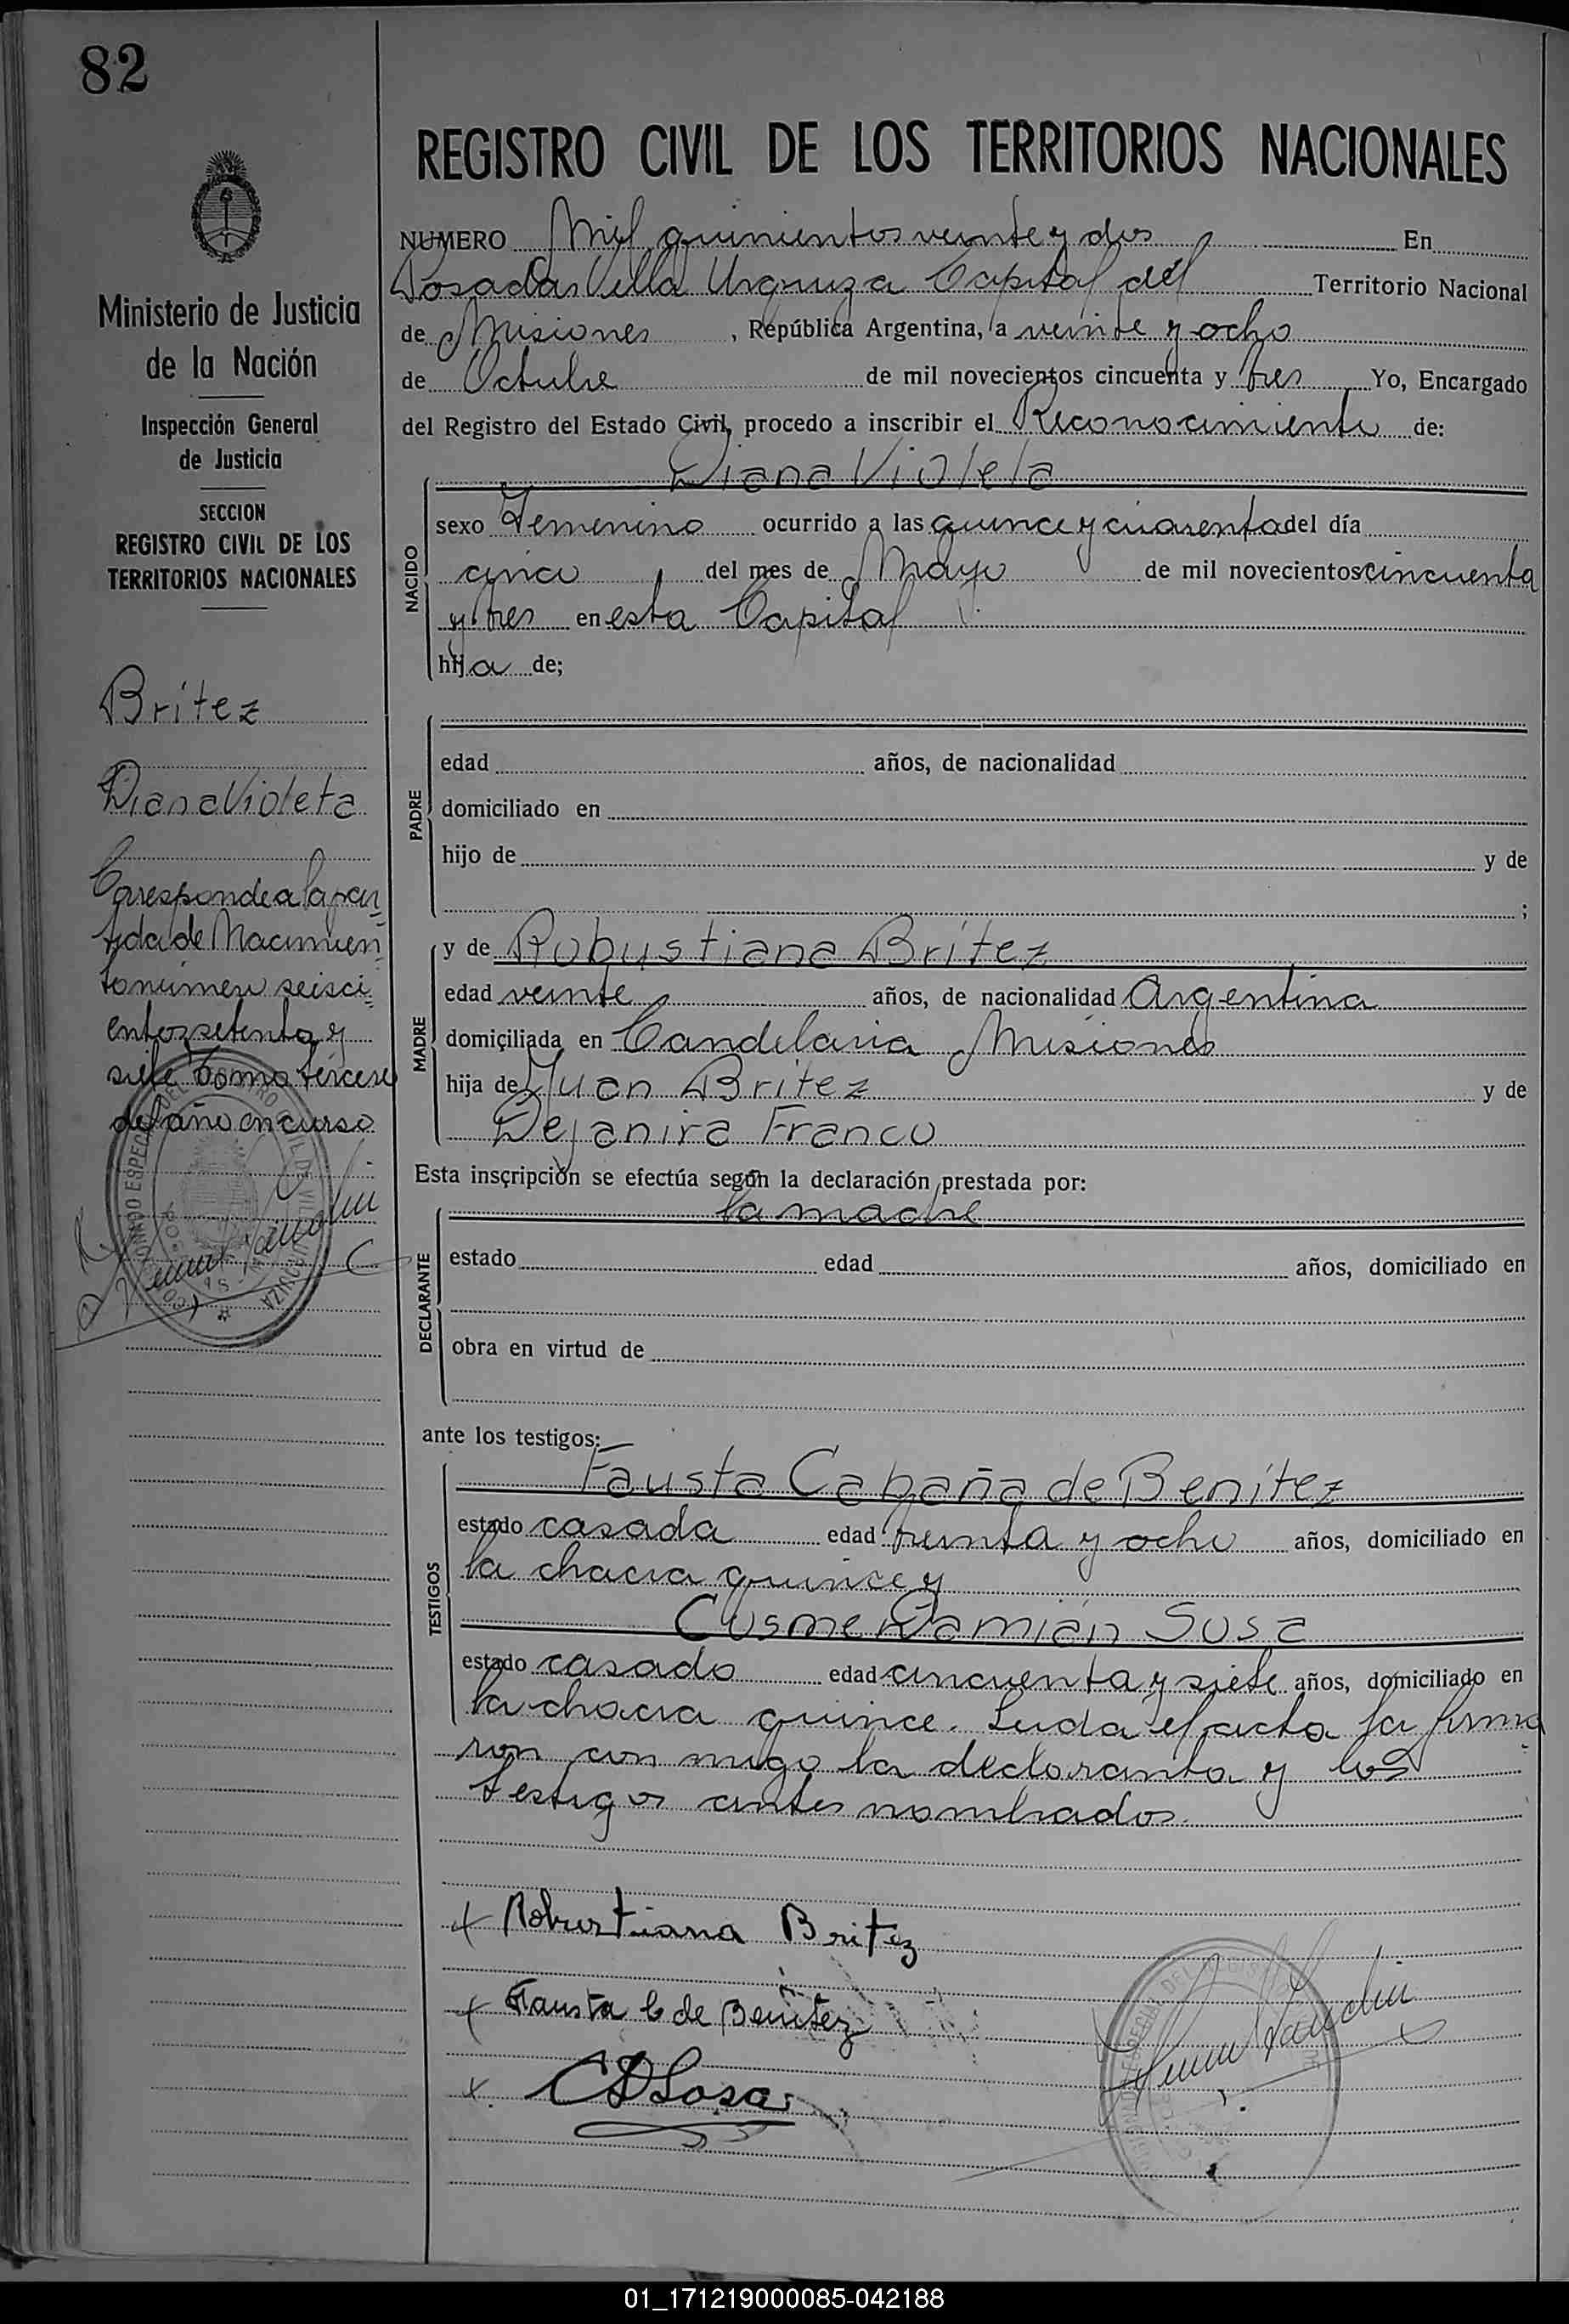 82
Ministerio de Justicia
de la Nación
Inspección General
de Justicia
SECCION
REGISTRO CIVIL DE LOS
TERRITORIOS NACIONALES
Britez
Diana Violeta
Corresponde a la par
tida de Nacimien
to número seisci
entos setenta y
siete Tomo tercero
del año en curso
REGISTRO CIVIL DE LOS TERRITORIOS NACIONALES
NUMERO Mil quinientos veinte y dos En
Posadas Villa Urquiza Capital del Territorio Nacional
de Misiones, República Argentina, a veinte y ocho
de Octubre de mil novecientos cincuenta y tres Yo, Encargado
del Registro del Estado Civil, procedo a inscribir el Reconocimiento de:
Diana Violeta
NACIDO
sexo Femenino ocurrido a las quince y cuarenta del día
cinco del mes de Mayo de mil novecientos cincuenta
y tres en esta Capital
hija de;
PADRE
edad años, de nacionalidad
domiciliado en
hijo de y de
;
MADRE
y de Robustiana Britez
edad veinte años, de nacionalidad Argentina
domiciliada en Candelaria Misiones
hija de Juan Britez y de
Deyanira Franco
Esta inscripción se efectúa según la declaración prestada por:
la madre
DECLARANTE
estado edad años, domiciliado en
obra en virtud de
ante los testigos:
TESTIGOS
Fausta Cabaña de Benítez
estado casada edad treinta y ocho años, domiciliado en
la chacra quince y
Cosme Damián Sosa
estado casado edad cincuenta y siete años, domiciliado en
la chacra quince. Leida el acta la firma
ron con migo la declaranta y los
testigos antes nombrados.
x Robustiana Britez
x Fausta C de Benitez
x. C D Sosa
01_171219000085-042188